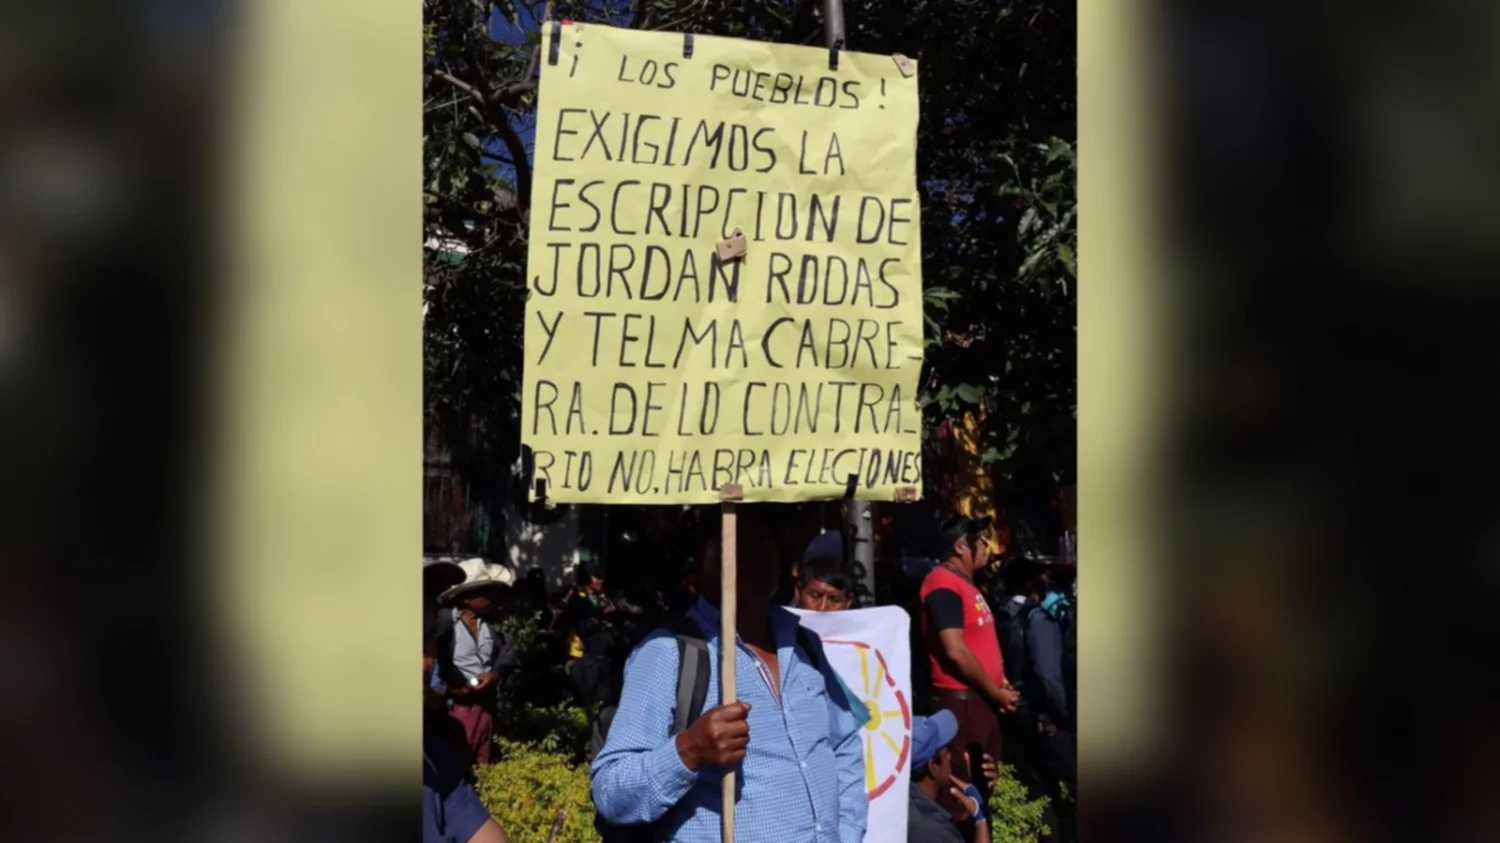 ¡ LOS PUEBLOS!
EXIGIMOS LA
ESCRIPCION DE
JORDAN RODAS
Y TELMA CABRE-
RA. DE LO CONTRA-
RIO NO. HABRA ELECIONES